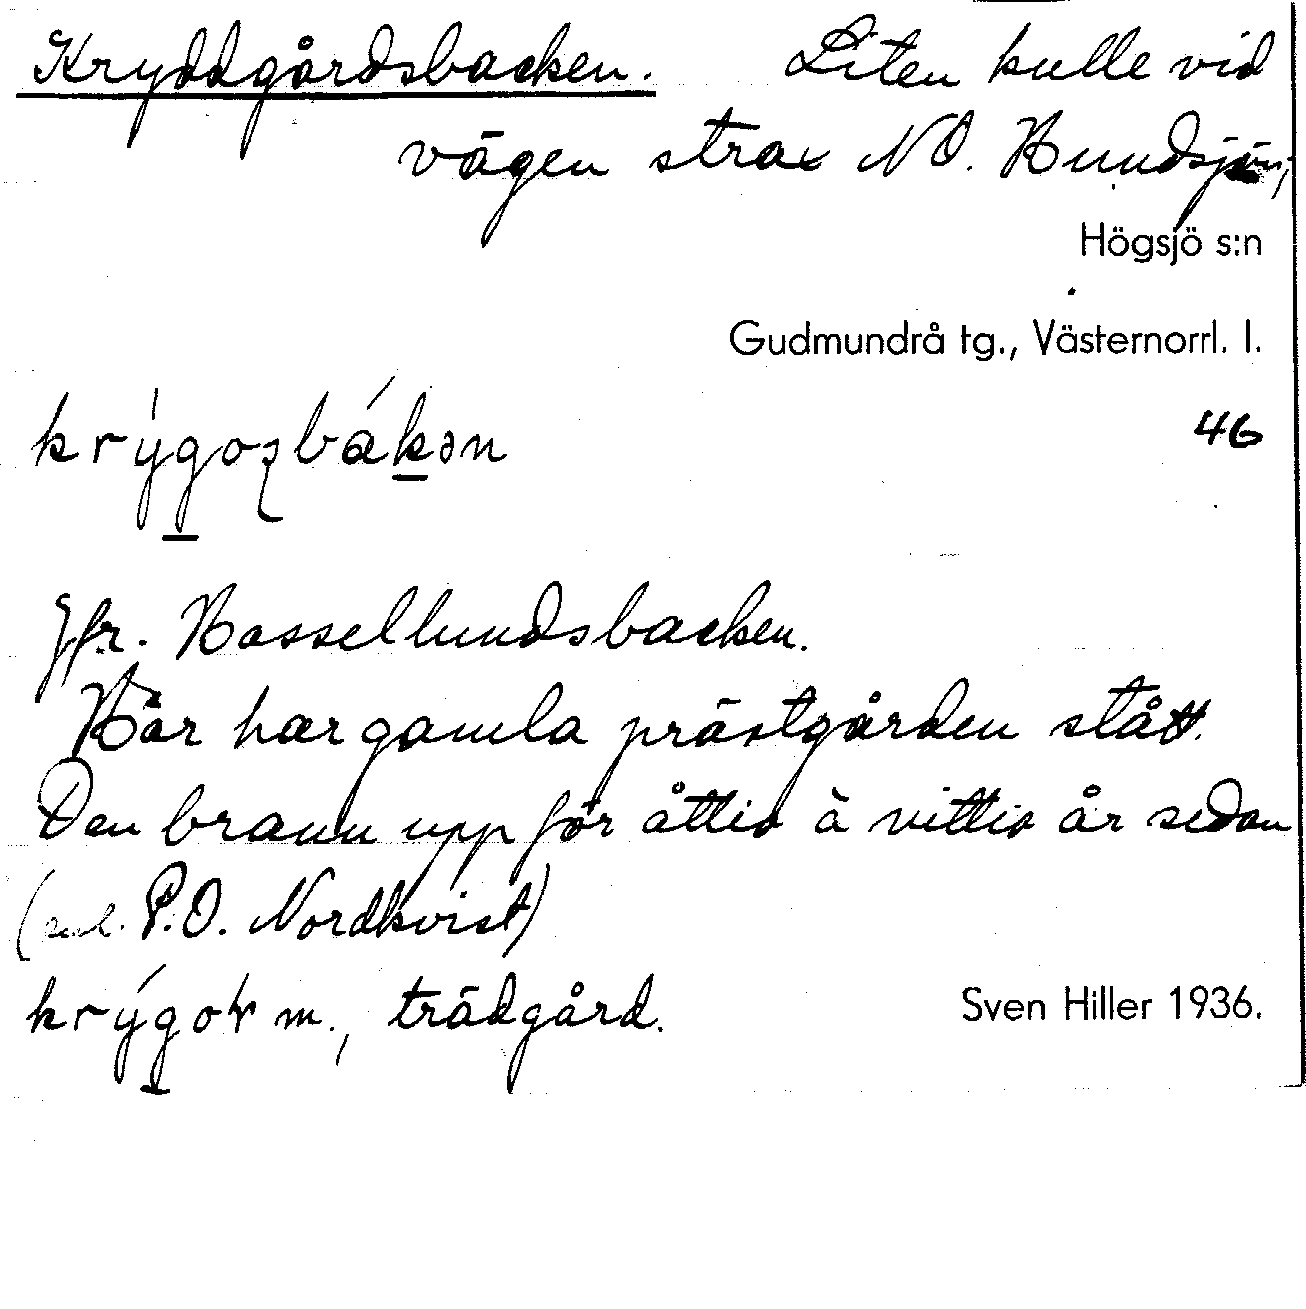 Kryddgårdsbacken. Liten kulle vid
vägen strax NO. Hundsjön,
Högsjö s:n
Gudmundrå tg., Västernorrl. l.
krýgoʂbákən 46
Jfr. Hassellundsbacken.
Här har gamla prästgården stått.
Den brann upp för åttio à nittio år sedan
(enl. P.O. Nordkvist)
krýgoɽ m., trädgård. Sven Hiller 1936.